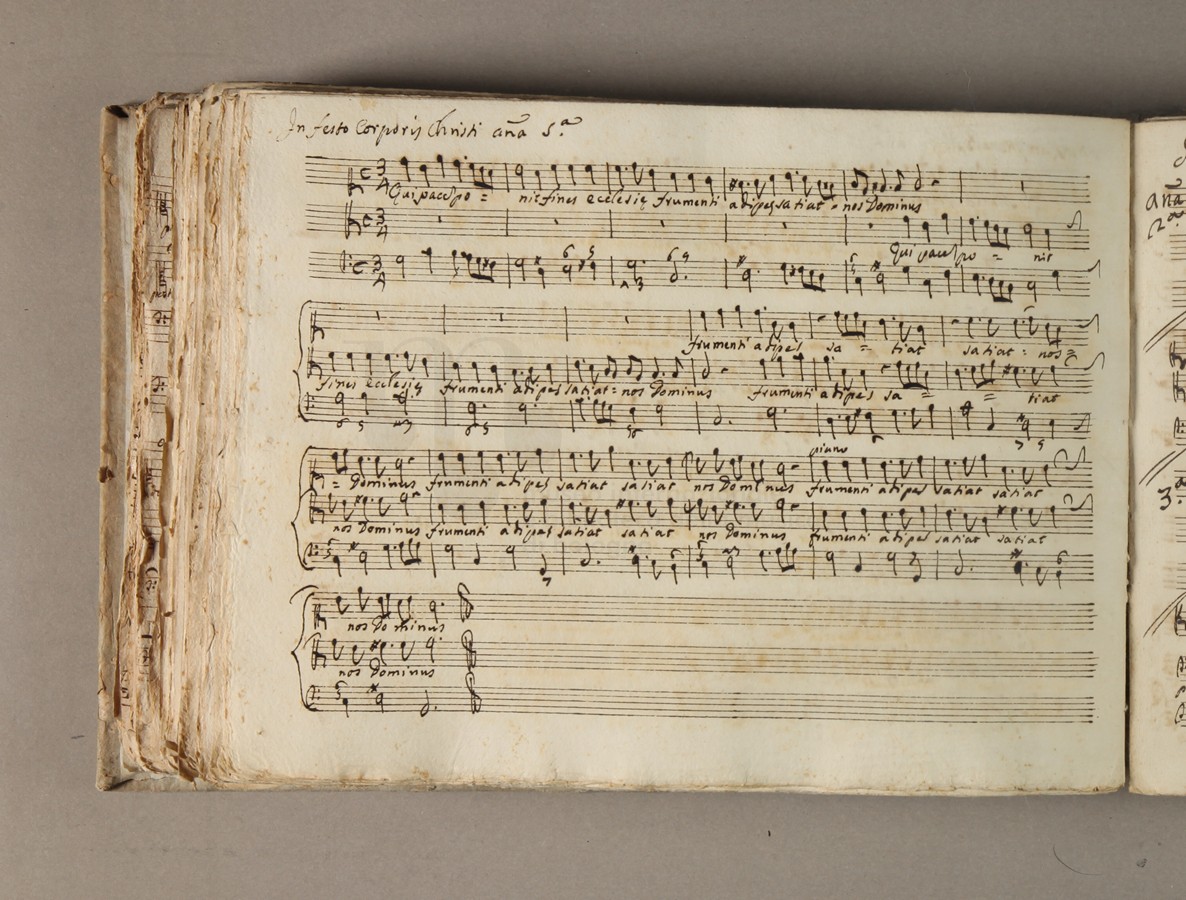 In festo Corporis Christi aña 5.ª
Qui pacē po = nit fines ecclesię frumenti adipe satiat = nos Dominus
Qui pacē po = nit
frumenti adipe sa = tiat satiat : nos =
fines ecclesię frumenti adipe satiat = nos Dominus frumenti adipe sa = = tiat
piano
= Dominus frumenti adipe satiat satiat nos Dominus frumenti adipe satiat satiat
nos Dominus frumenti adipe satiat satiat nos Dominus frumenti adipe satiat satiat
nos Dominus
nos Dominus
aña
2.ª
3.ª